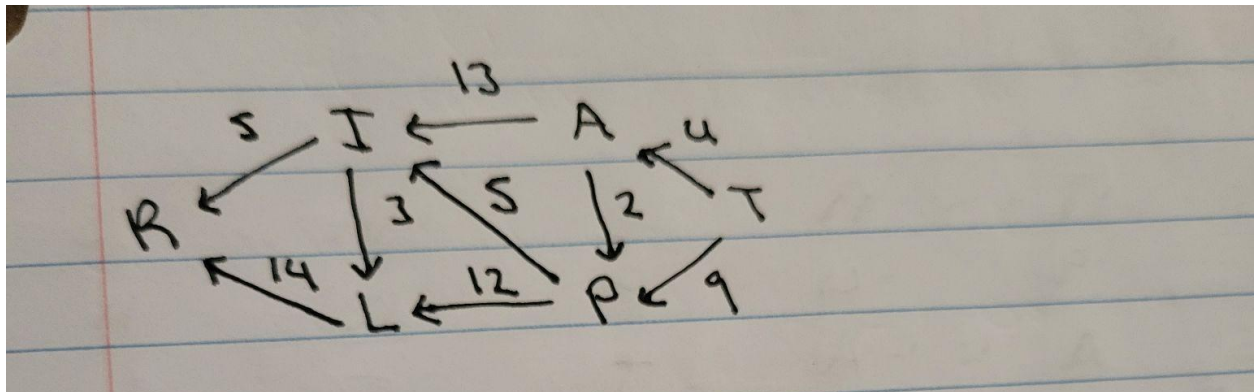 13
5 I A 4
R 3 5 2 T
14 L 12 P 9